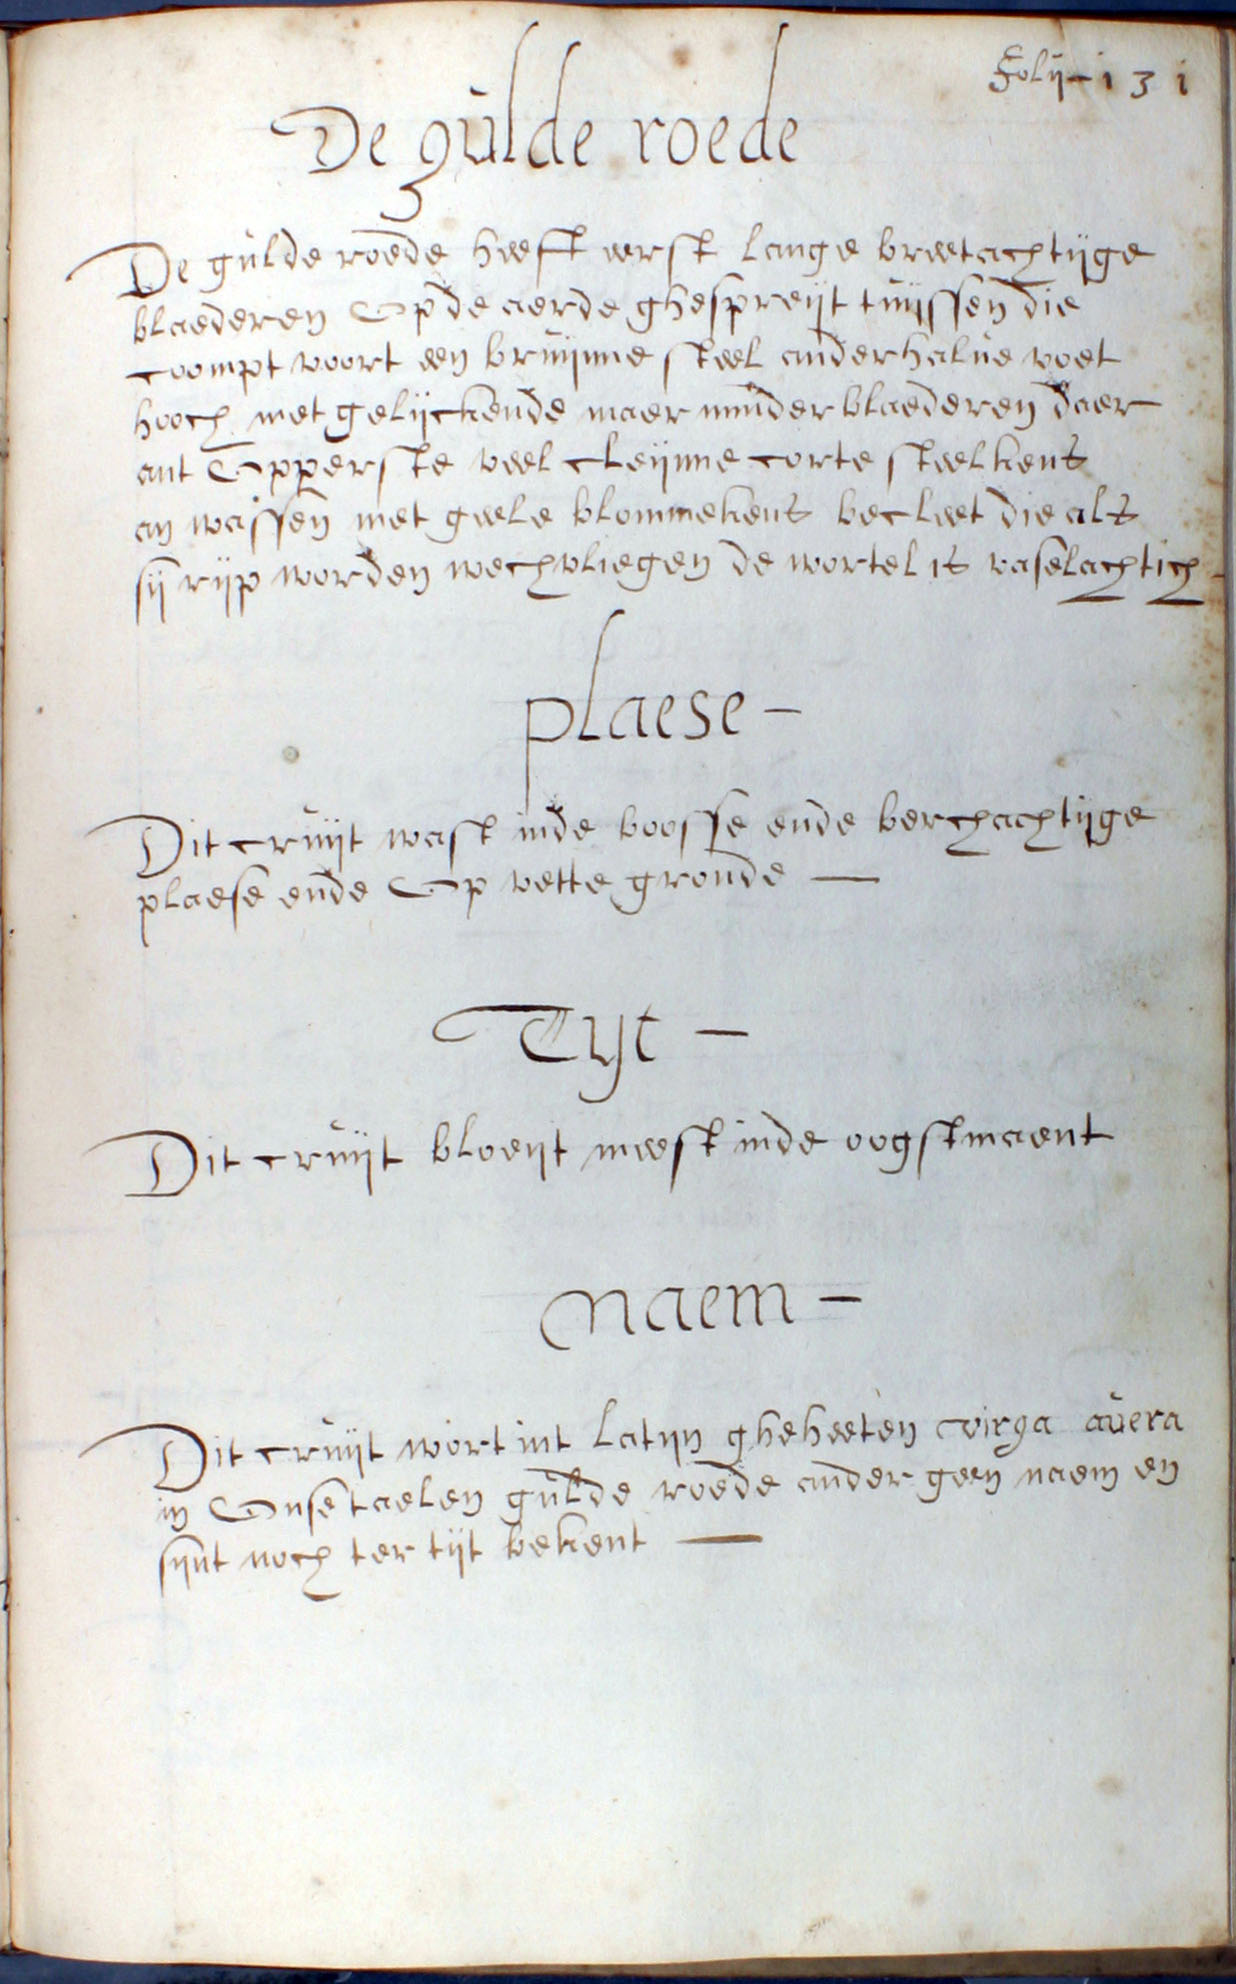 Folij - 131
De gulde roede
De gulde roede heeft eerst lange breetachtijge
blaederen Op de aerde ghespreijt tuijssen die
coompt voort een bruijnne steel anderhalve voet
hooch met gelijckende maer minder blaederen daer
ant Opperste veel cleijnne corte steelkens
an wassen met geele blommekens becleet die als
sij rijp worden wech vliegen de wortel is vaselachtich
plaese -
Dit cruijt wast inde boosse ende berchachtijge
plaese ende Op vette gronde —
Tijt -
Dit cruijt bloeijt meest inde oogstmaent
Naem -
Dit cruijt wort int latijn gheheeten virga auera
in Onse taelen gulde roede ander geen naem en
sijnt noch ter tijt bekent —